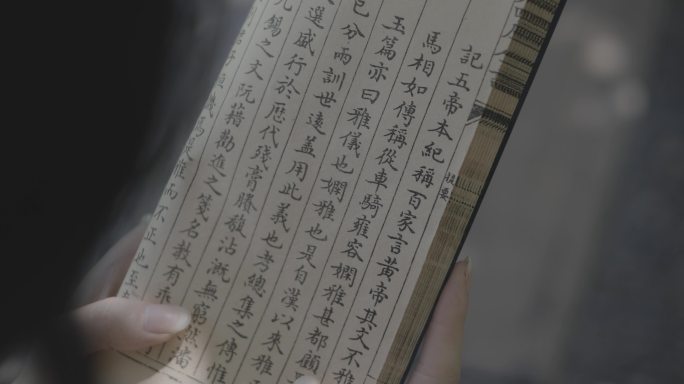 記五帝本紀稱百家言黃帝其文不雅
提要
馬相如傳稱從車騎雍容嫻雅甚都顧
玉篇亦曰雅儀也嫻雅也是自漢以來雅
已分兩訓世遠蓋用此義也考總集之傳惟
選盛行於歴代殘膏賸馥沾溉無窮然潘
錫之文阮籍勸進之箋名教有乖
而不正也至